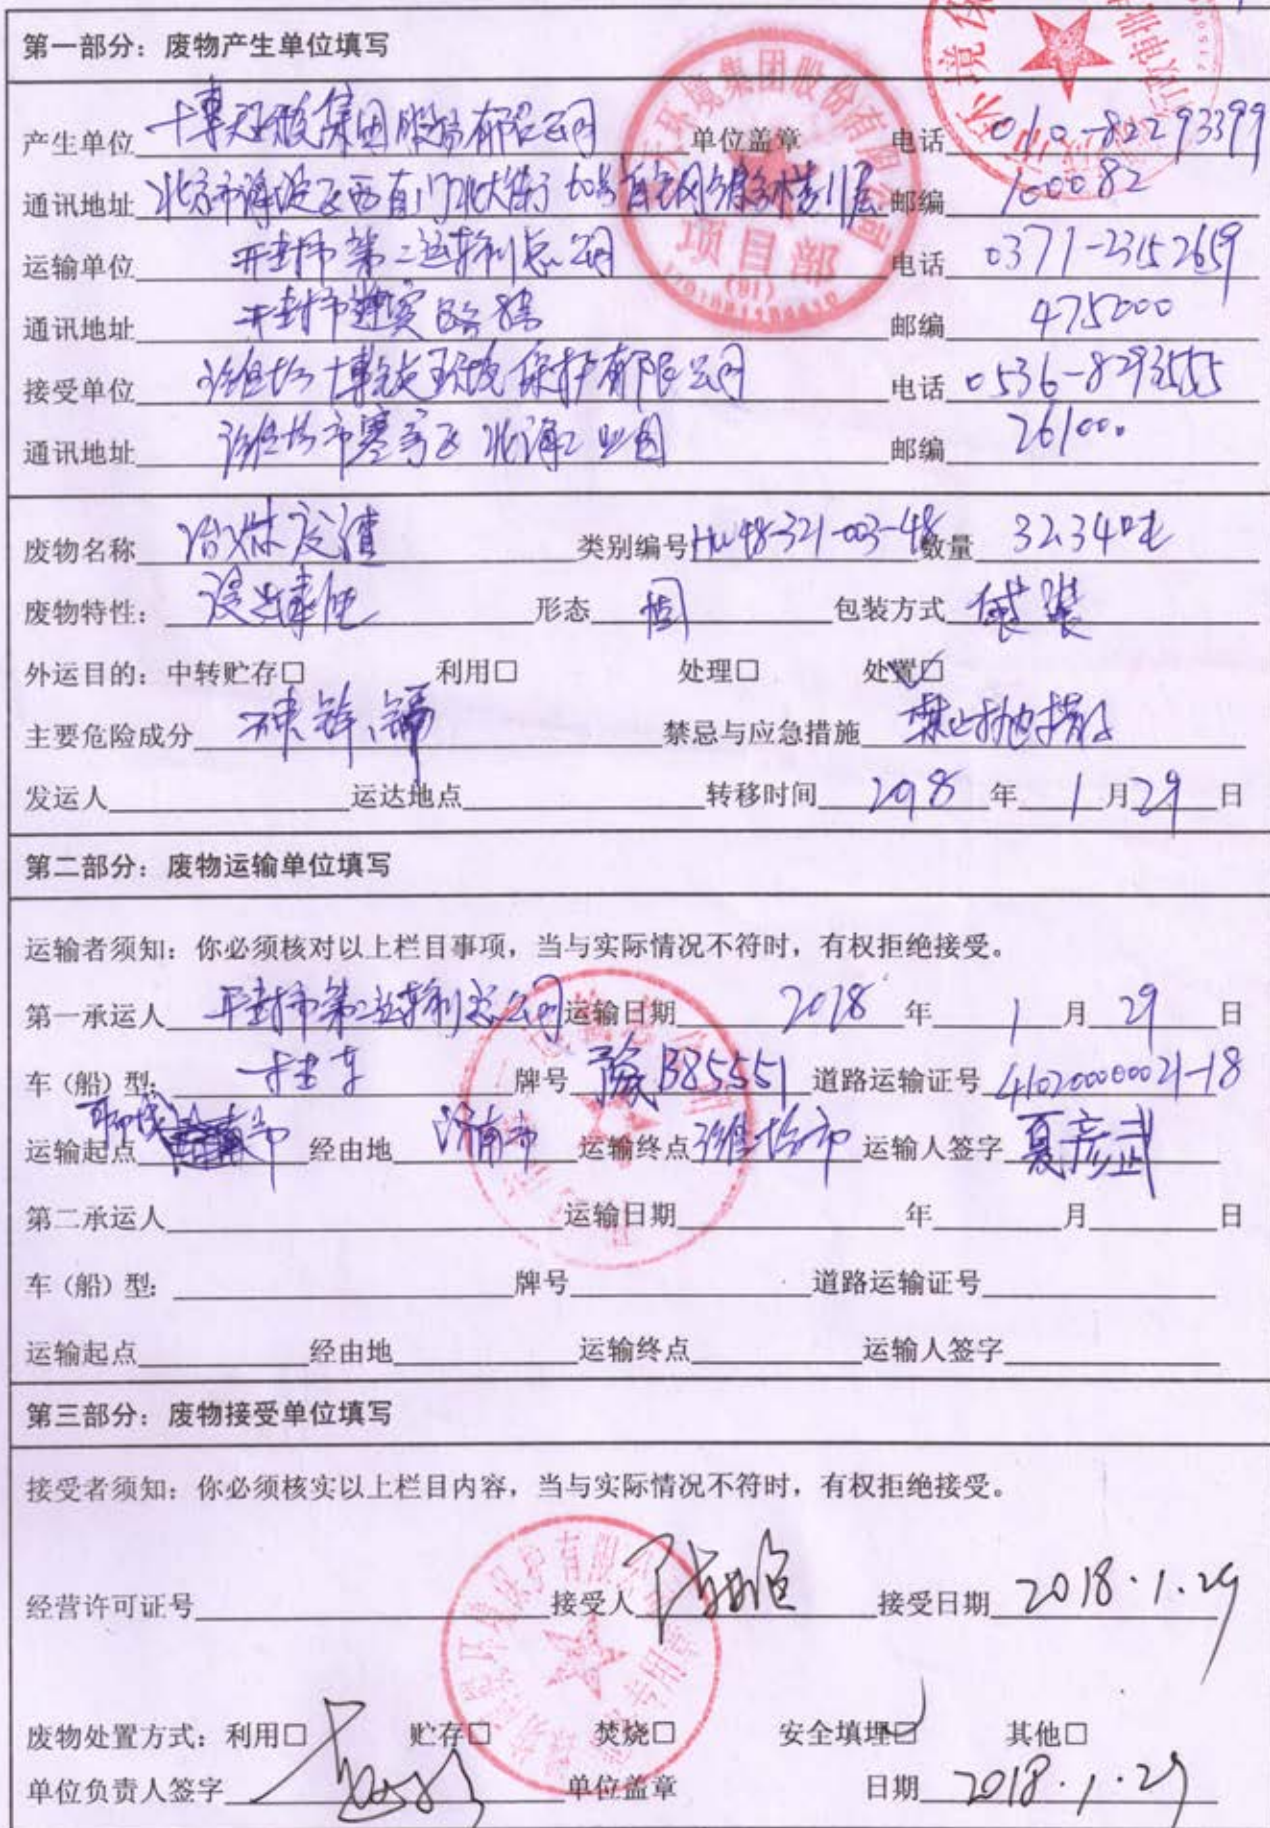 第一部分：废物产生单位填写
产生单位 博天环境集团股份有限公司 单位盖章 电话 010-82293399
通讯地址 北京市海淀区西直门北大街60号首钢国际大楼11层 邮编 100082
运输单位 开封市第二运输总公司 电话 0371-23152659
通讯地址 开封市 邮编 475000
接受单位 潍坊博锐环境保护有限公司 电话 0536-8293555
通讯地址 潍坊市寒亭区北海工业园 邮编 261000
废物名称 冶炼废渣 类别编号 HW48-321-003-48 数量 32.34吨
废物特性： 浸出毒性 形态 固 包装方式 袋装
外运目的：中转贮存□ 利用□ 处理□ 处置☑
主要危险成分 砷、锌、镉 禁忌与应急措施 禁止抛撒
发运人 运达地点 转移时间 2018 年 1 月 29 日
第二部分：废物运输单位填写
运输者须知：你必须核对以上栏目事项，当与实际情况不符时，有权拒绝接受。
第一承运人 开封市第二运输总公司 运输日期 2018 年 1 月 29 日
车（船）型： 卡车 牌号 豫B85551 道路运输证号 410200000021-18
运输起点 聊城市 经由地 济南市 运输终点 潍坊市 运输人签字 夏彦武
第二承运人 运输日期 年 月 日
车（船）型： 牌号 道路运输证号
运输起点 经由地 运输终点 运输人签字
第三部分：废物接受单位填写
接受者须知：你必须核实以上栏目内容，当与实际情况不符时，有权拒绝接受。
经营许可证号 接受人 接受日期 2018.1.29
废物处置方式：利用□ 贮存□ 焚烧□ 安全填埋☑ 其他□
单位负责人签字 单位盖章 日期 2018.1.29